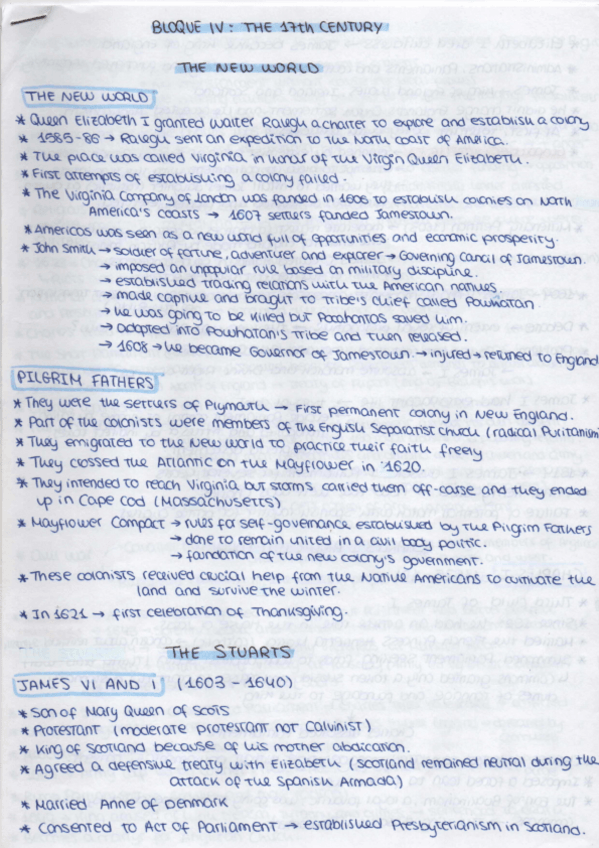 BLOQUE IV: THE 17th CENTURY
THE NEW WORLD
THE NEW WORLD
* Queen Elizabeth I granted Walter Ralegh a charter to explore and establish a colony
* 1585-86 → Ralegh sent an expedition to the North coast of America.
* The place was called Virginia in honour of the Virgin Queen Elizabeth.
* First attempts of establishing a colony failed.
* The Virginia Company of London was funded in 1606 to establish colonies on North
America's coasts → 1607 settlers funded Jamestown.
* Americas was seen as a new world full of opportunities and economic prosperity.
* John Smith → soldier of fortune, adventurer and explorer → Governing Council of Jamestown.
→ imposed an unpopular rule based on military discipline.
→ established trading relations with the American natives.
→ made captive and brought to Tribe's chief called Powhatan
→ he was going to be killed but Pocahontas saved him.
→ adopted into Powhatan's Tribe and then released.
→ 1608 → he became Governor of Jamestown. → injured → returned to England
PILGRIM FATHERS
* They were the settlers of Plymouth → First permanent colony in New England.
* Part of the colonists were members of the English Separatist Church (radical Puritanism
* They emigrated to the New World to practice their faith freely
* They crossed the Atlantic on the Mayflower in 1620.
* They intended to reach Virginia but storms carried them off-course and they ended
up in Cape Cod (Massachusetts)
* Mayflower Compact → rules for self-governance established by the Pilgrim Fathers
→ done to remain united in a civil body politic.
→ foundation of the new colony's government.
* These colonists received crucial help from the Native Americans to cultivate the
land and survive the winter.
* In 1621 → first celebration of Thanksgiving.
THE STUARTS
JAMES VI AND I (1603 - 1640)
* Son of Mary Queen of Scots
* Protestant (moderate protestant not Calvinist)
* King of Scotland because of his mother abdication.
* Agreed a defensive treaty with Elizabeth (Scotland remained neutral during the
attack of the Spanish Armada)
* Married Anne of Denmark
* Consented to Act of Parliament → established Presbyterianism in Scotland.